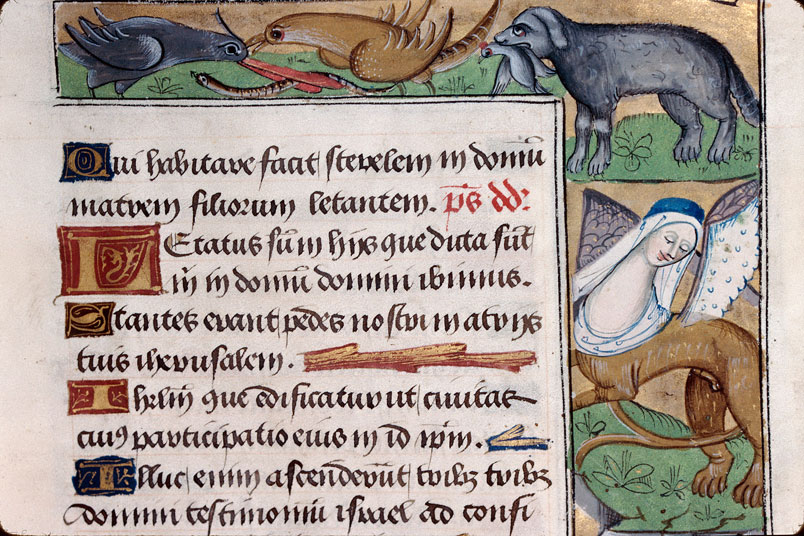 Qui habitare facit sterelem in domū
matrem filiorum letantem. p̄s dd:
LEtatus sū in hijs que dicta sūt
m̄ in domū domini ibimus.
Stantes erant pedes nostri in atrijs
tuis iherusalem.
Ihrlm̄ que edificatur ut ciuitas
cuiꝯ participatio eius in id ip̄m.
Illuc enim ascenderūt tribꝫ tribꝫ
domini testimoniū israel ad confi